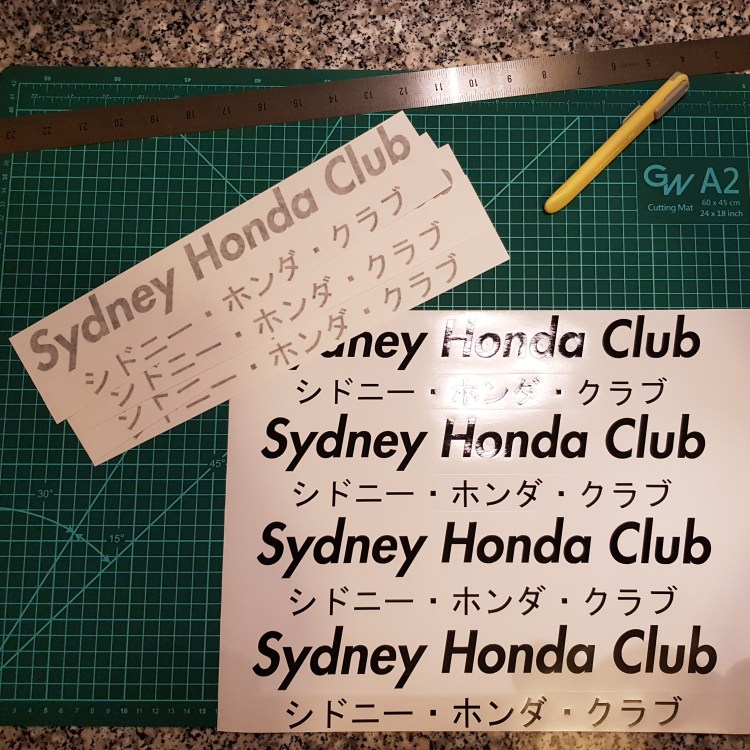 GW A2
Cutting Mat
60 x 45 cm
24 x 18 inch
Sydney Honda Club
シドニー・ホンダ・クラブ
シドニー・ホンダ・クラブ
シドニー・ホンダ・クラブ
ydney Honda Club
シドニー・ホンダ・クラブ
Sydney Honda Club
シドニー・ホンダ・クラブ
Sydney Honda Club
シドニー・ホンダ・クラブ
Sydney Honda Club
シドニー・ホンダ・クラブ
45°
30°
15°